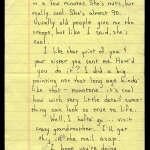 in a few minutes. She's nuts, but
really cool. She's almost 90.
Usually old people give me the
creeps, but like I said, she's
cool.
I like that print of you &
your sister you sent me. How'd
you do it? I did a big
painting not that long ago kinda'
like that - monotone. it's cool
how with very little detail some-
thing can look so true to life.
Well, I hafta' go - visit
crazy grandmother. I'll get
this in the mail asap.
I hope you're doing